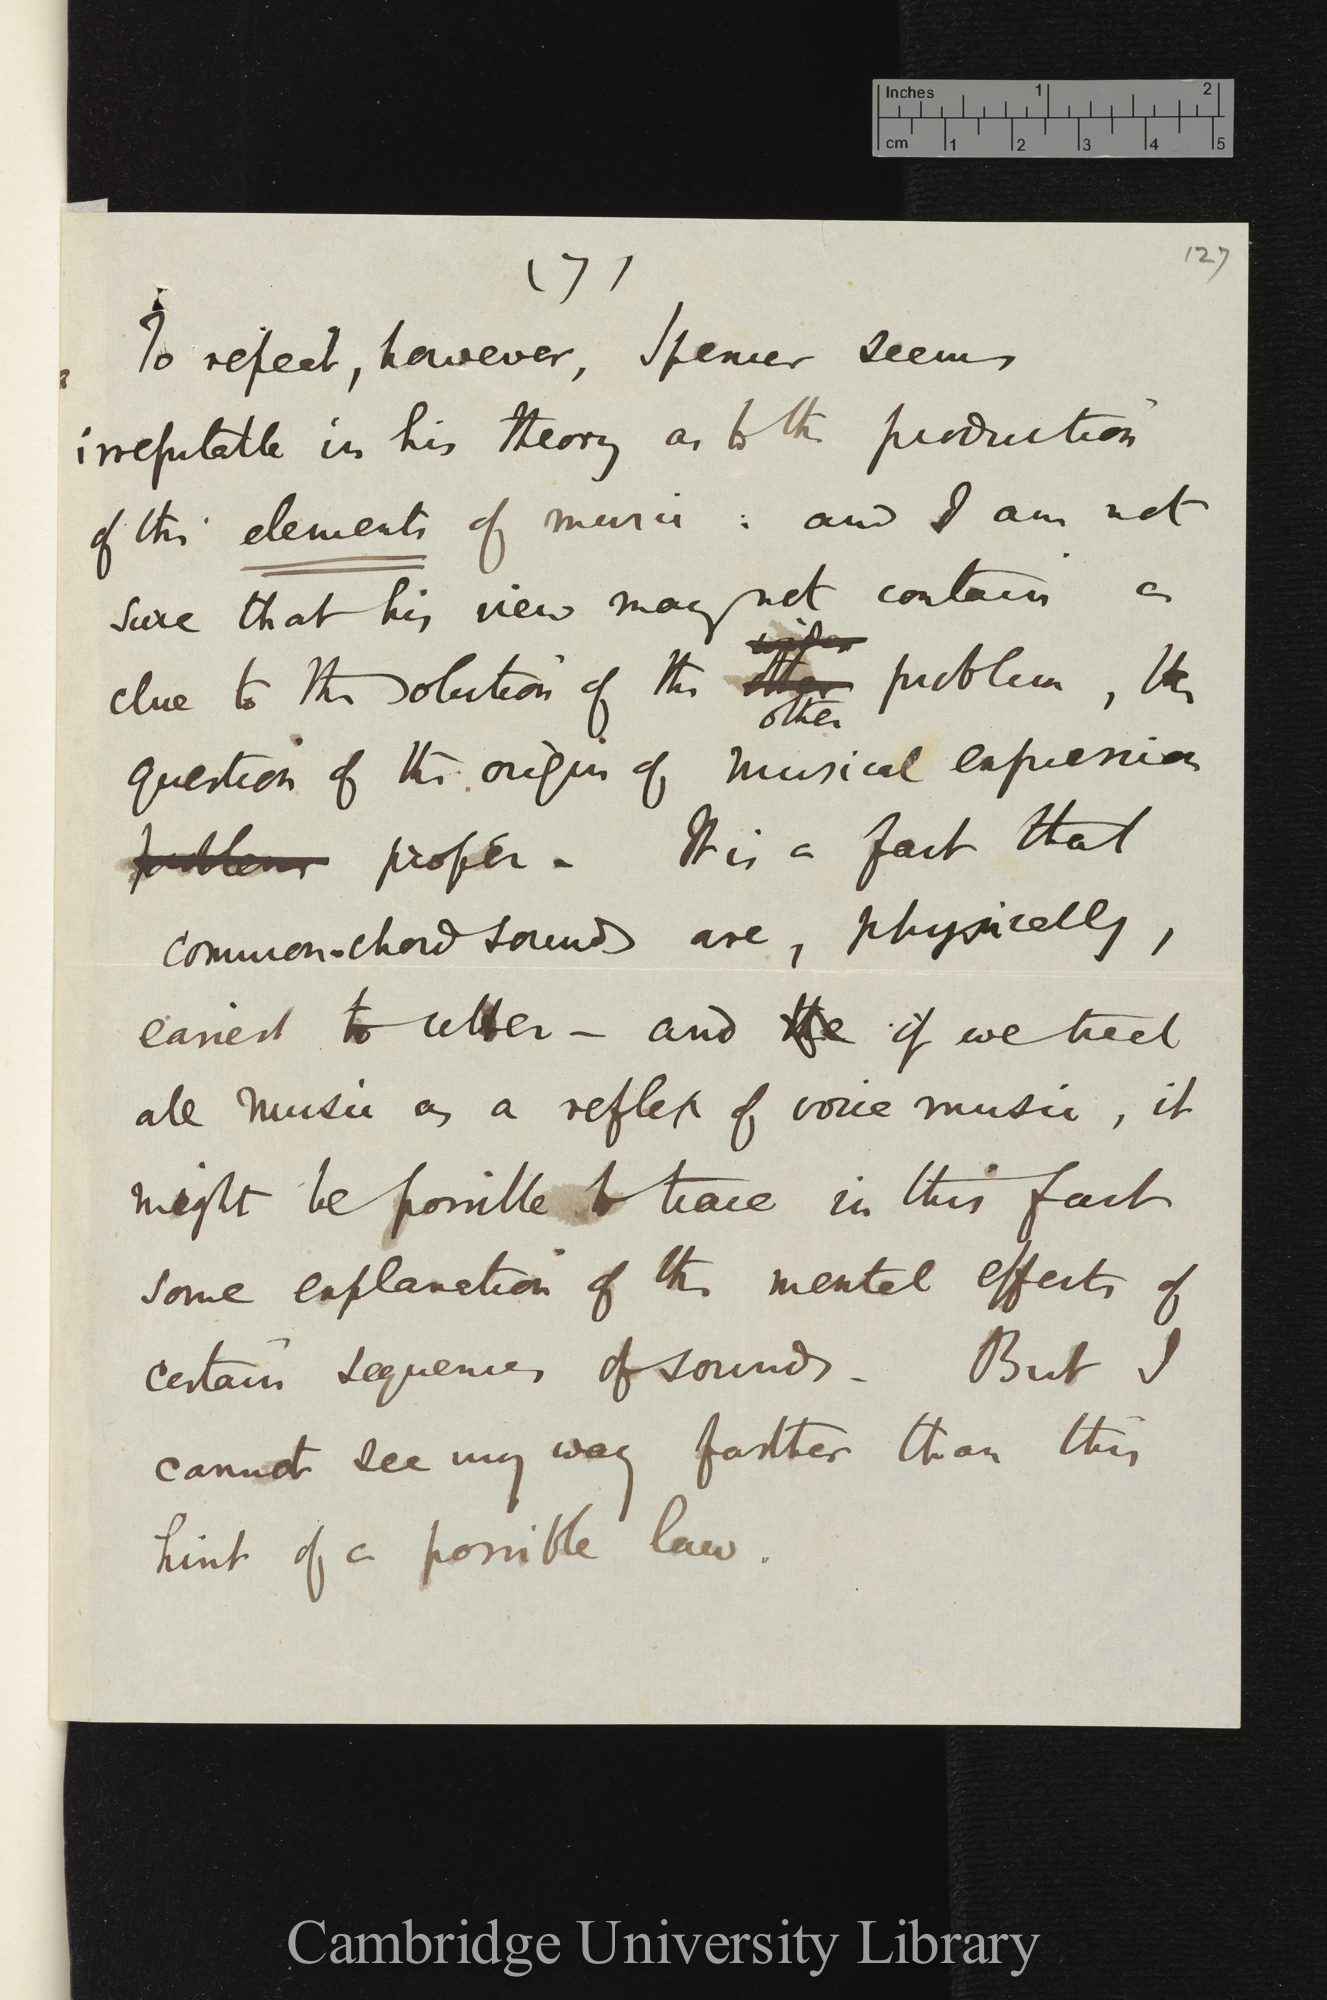 Inches 1 2
cm 1 2 3 4 5
127
(7)
To repeat, however, Spencer seems
irrefutable in his theory as to the production
of the elements of music : and I am not
sure that his view may not contain a
wider
clue to the solution of the other problem, the
other
question of the origin of musical expression
problem proper - It is a fact that
common-chord sounds are, physically,
easiest to utter - and the if we treat
all music as a reflex of voice music, it
might be possible to trace in this fact
some explanation of the mental effects of
certain sequences of sounds - But I
cannot see my way farther than this
hint of a possible law.
Cambridge University Library